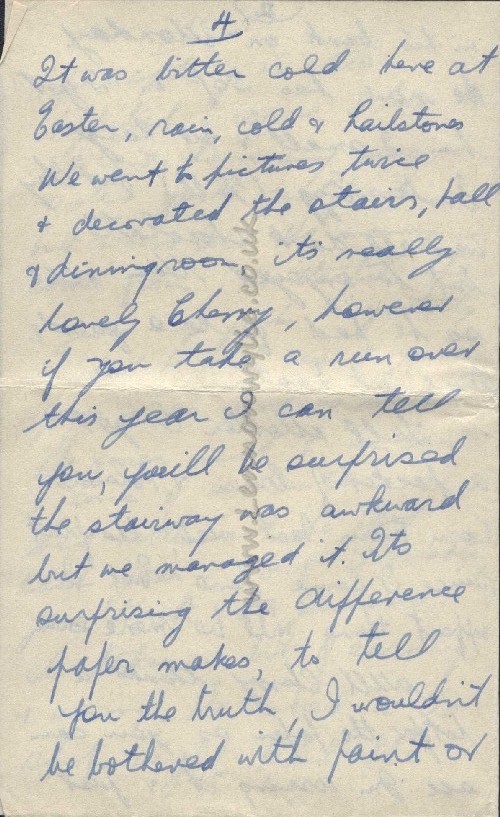 4
It was bitter cold here at
Easter, rain, cold & hailstones
We went to pictures twice
& decorated the stairs, hall
& diningroom, it's really
lovely Cherry, however
if you take a run over
this year I can tell
you, you'll be surprised
the stairway was awkward
but we managed it. Its
surprising the difference
paper makes, to tell
you the truth, I wouldn't
be bothered with paint or